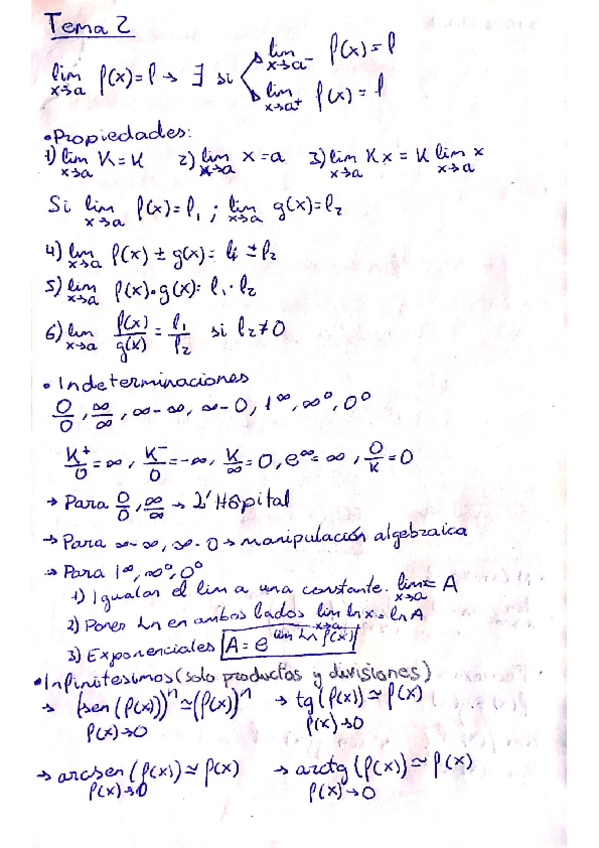 Tema 2
lim x→a f(x)=l → ∃ si lim x→a⁻ f(x)=l
lim x→a⁺ f(x)=l
• Propiedades:
1) lim x→a K=K 2) lim x→a x=a 3) lim x→a Kx = K lim x→a x
Si lim x→a f(x)=l₁ ; lim x→a g(x)=l₂
4) lim x→a f(x) ± g(x)= l₁ ± l₂
5) lim x→a f(x)·g(x)= l₁·l₂
6) lim x→a f(x)/g(x) = l₁/l₂ si l₂≠0
• Indeterminaciones
0/0, ∞/∞, ∞-∞, ∞-0, 1^∞, ∞⁰, 0⁰
K⁺/0=∞, K⁻/0=-∞, K/∞=0, e^∞=∞, 0/K=0
→ Para 0/0, ∞/∞ → L'Hôpital
→ Para ∞-∞, ∞·0 → manipulación algebraica
→ Para 1^∞, ∞⁰, 0⁰
1) Igualar el lim a una constante. lim x→a x= A
2) Poner Ln en ambos lados lim x→a ln x = ln A
3) Exponenciales A = e^(lim Ln f(x))
• Infinitesimos (solo productos y divisiones)
→ (sen(f(x)))ⁿ ≃ (f(x))ⁿ → tg(f(x)) ≃ f(x)
f(x)→0 f(x)→0
→ arcsen(f(x)) ≃ f(x) → arctg(f(x)) ≃ f(x)
f(x)→0 f(x)→0